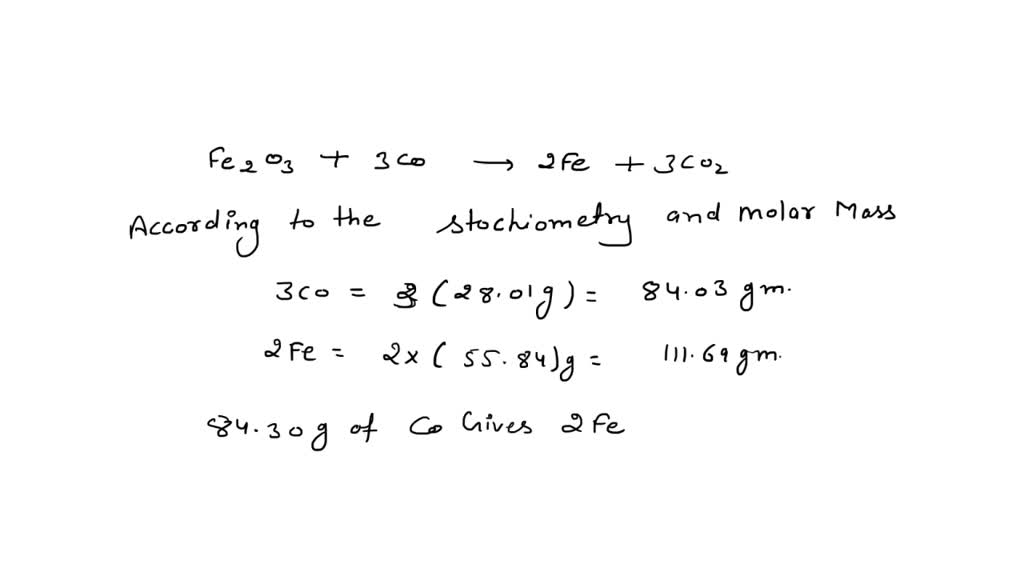 Fe2O3 + 3CO → 2Fe + 3CO2
According to the stochiometry and molar Mass
3CO = 3 (28.01g) = 84.03 gm.
2Fe = 2x (55.84)g = 111.69 gm.
84.30g of CO Gives 2Fe